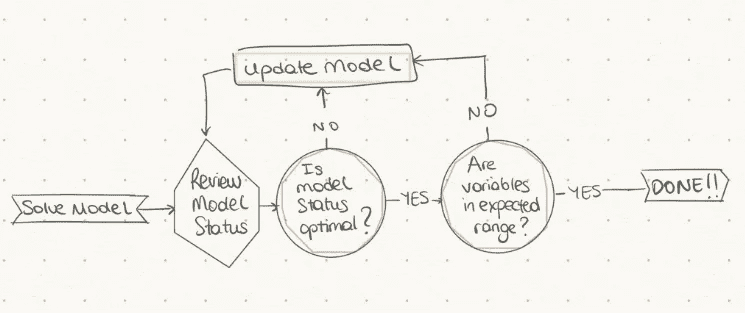 update model
NO
NO
Solve Model
Review
Model
Status
Is
model
Status
optimal?
YES
Are
variables
in expected
range?
YES
DONE!!